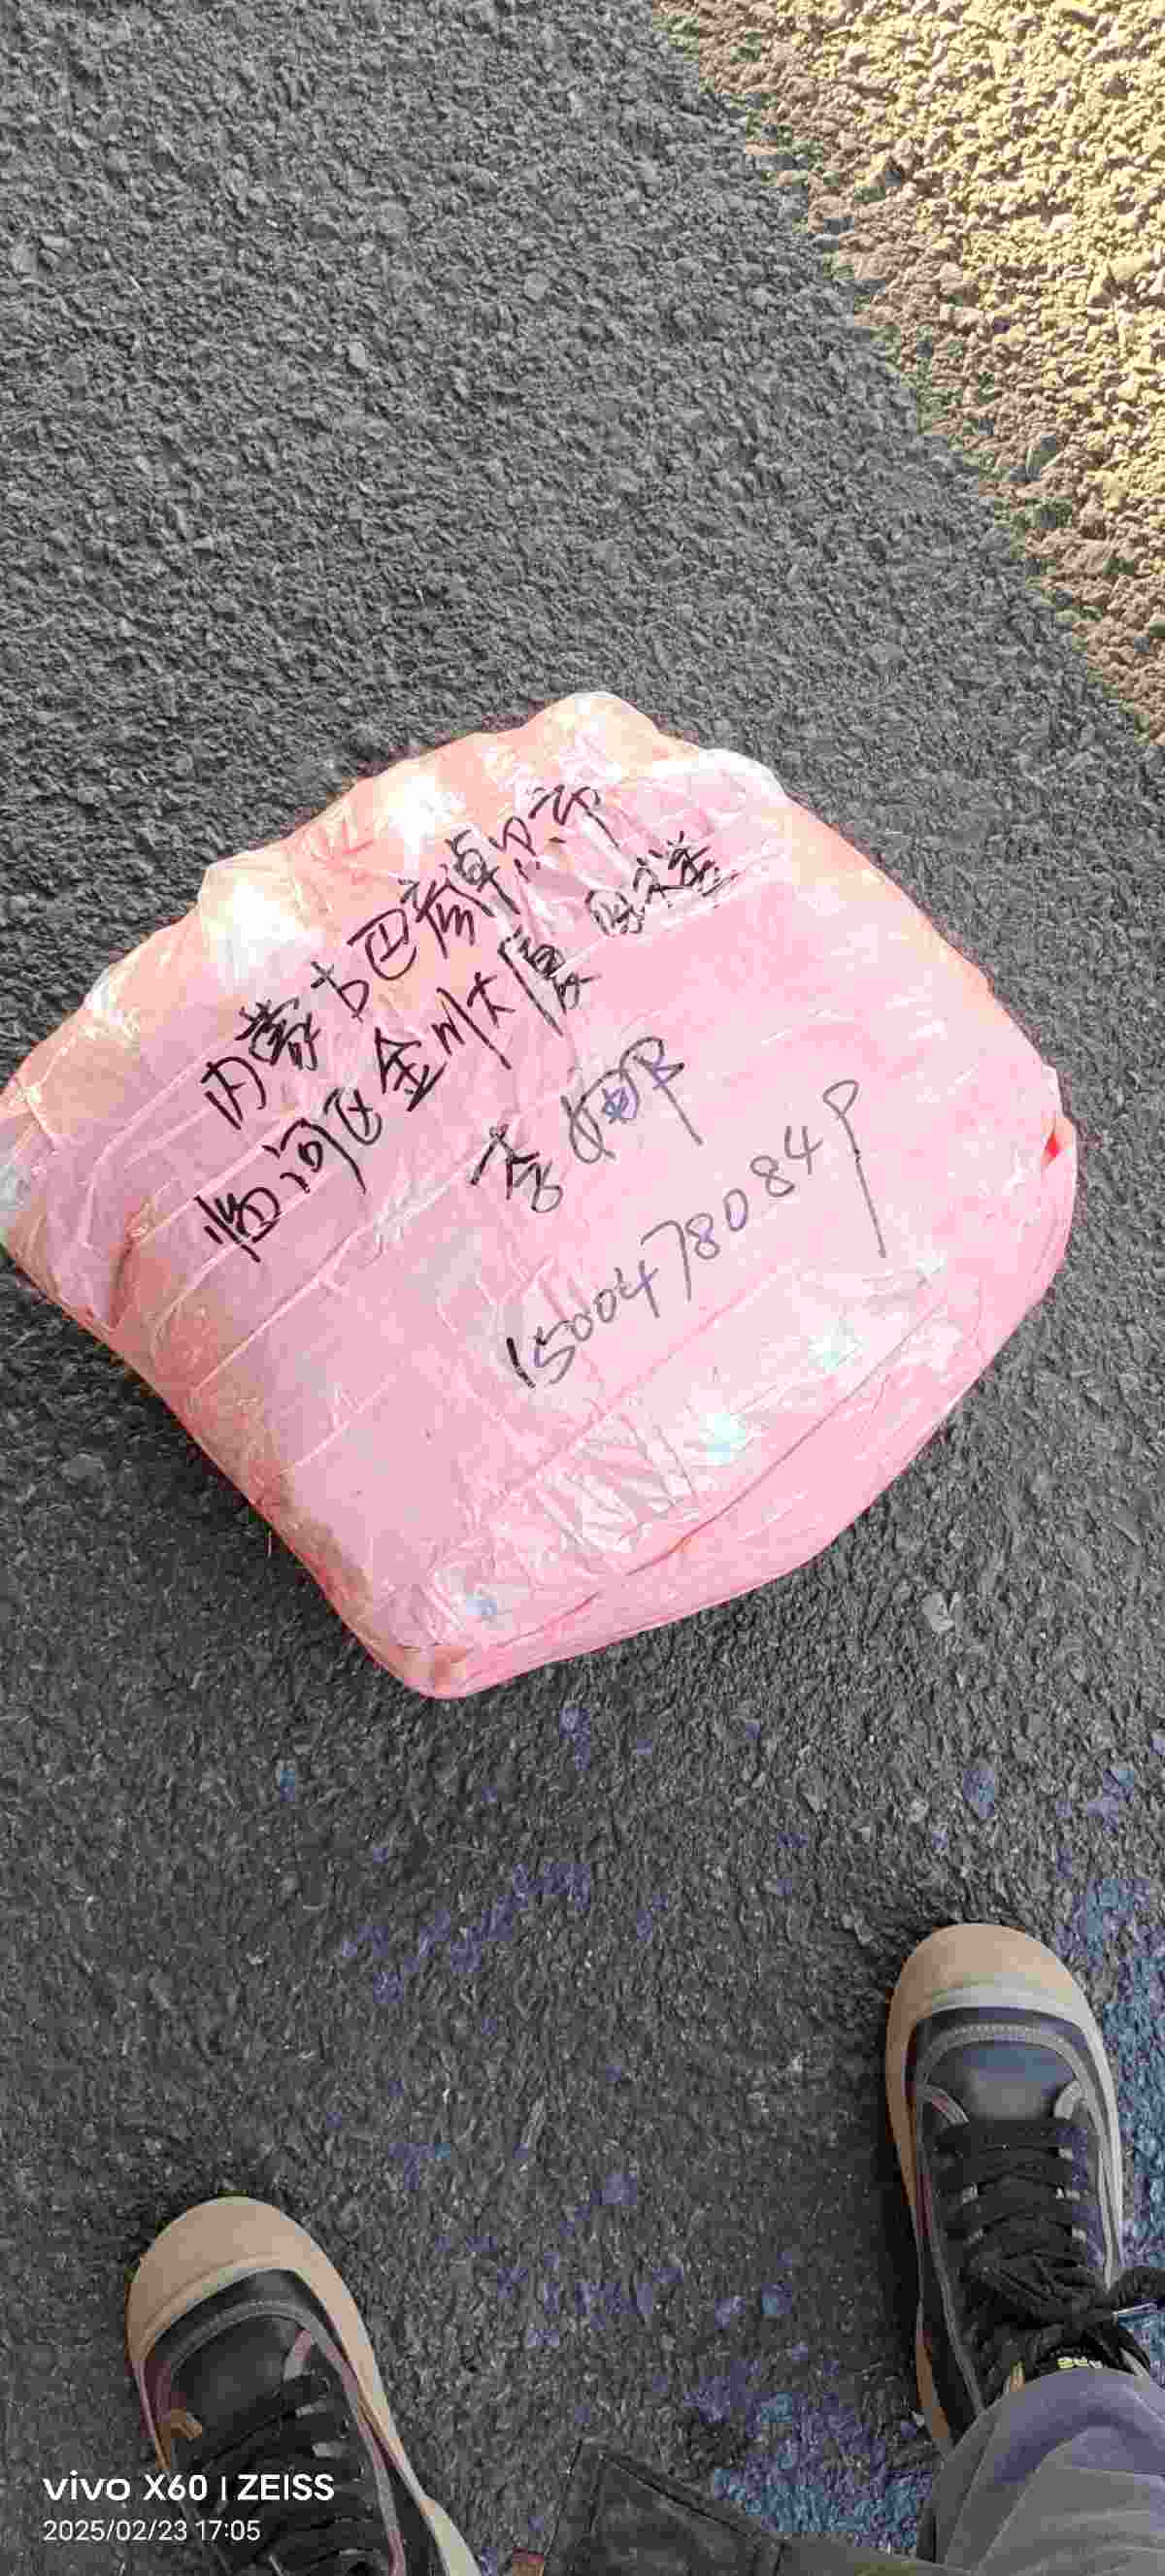 内蒙古巴彦卓尔市
临河区金川大厦
李
15004780849
vivo X60 | ZEISS
2025/02/23 17:05